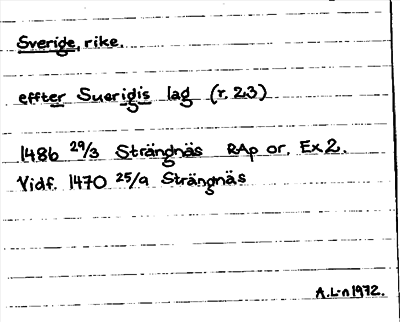 Sverige, rike.
effter Suerigis lag (r. 2.3)
1486 29/3 Strängnäs RAp or. Ex 2.
Vidf. 1470 25/9 Strängnäs
A.L-n 1972.